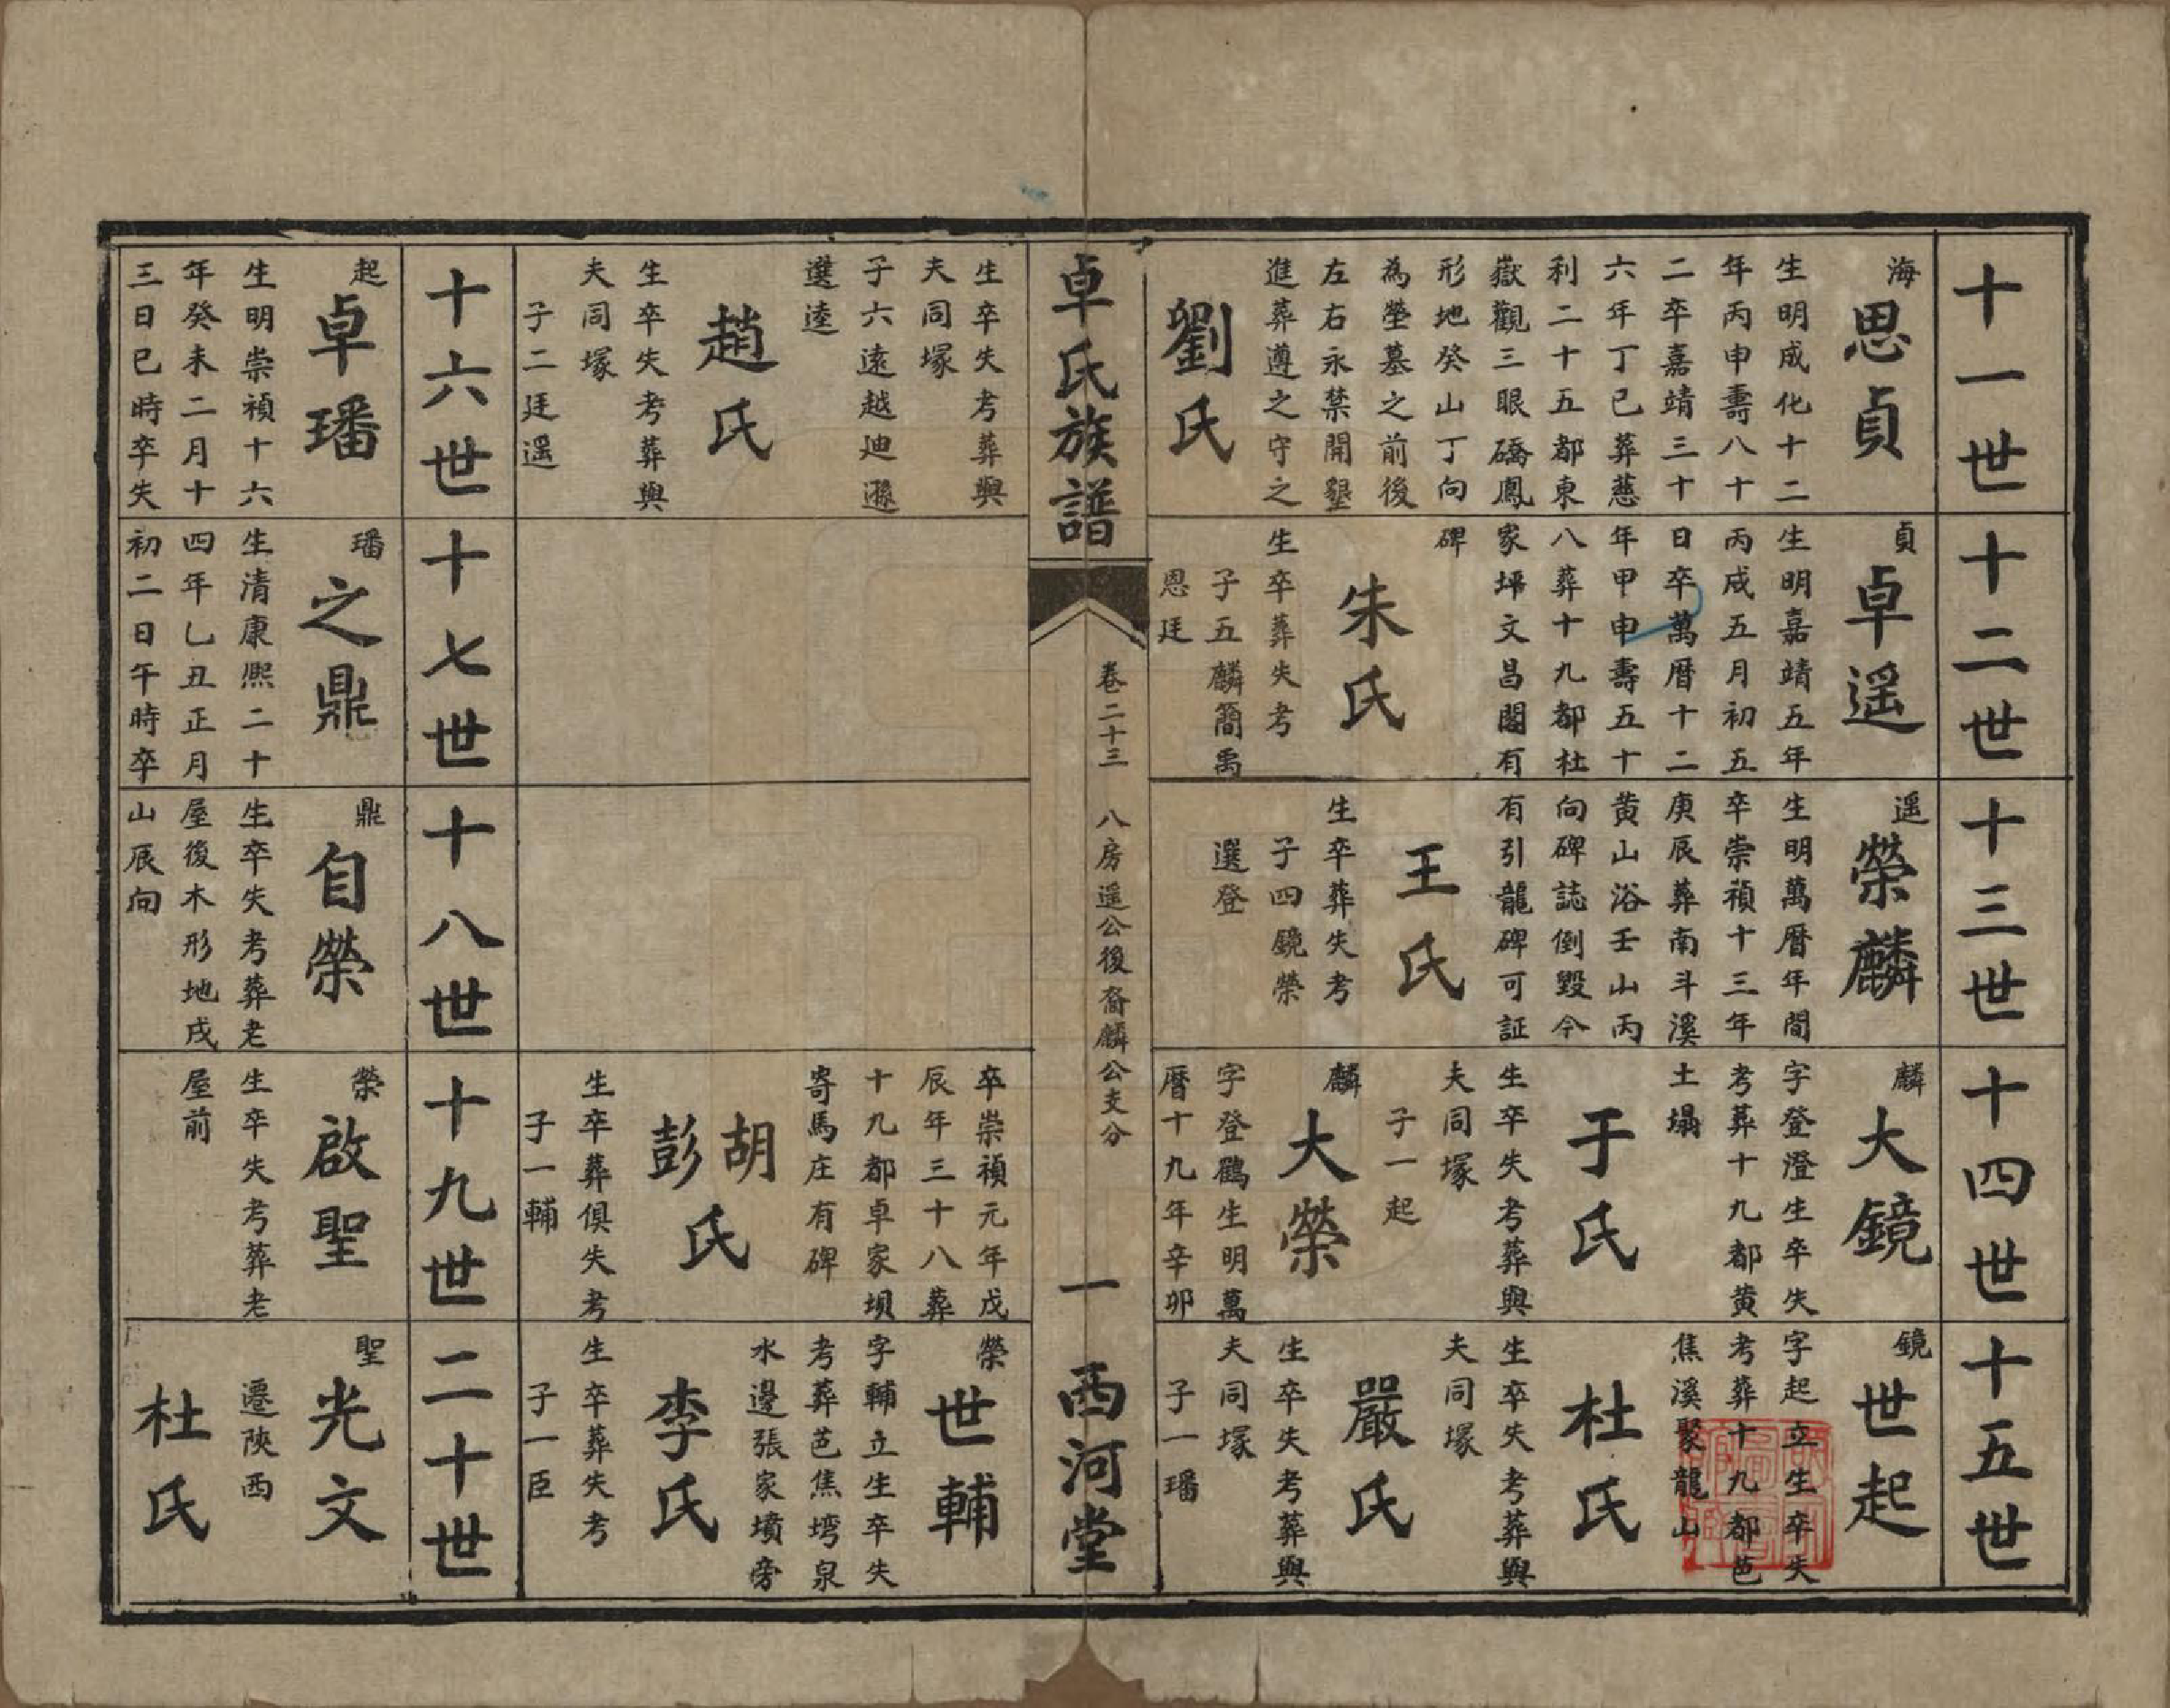 十一世
海
思貞
生明成化十二
年丙申壽八十
二卒嘉靖三十
六年丁巳葬慈
利二十五都東
嶽觀三眼礄鳳
形地癸山丁向
為塋墓之前後
左右永禁開墾
進葬遵之守之
劉氏
生卒失考葬與
夫同塚
子六遠越迪遜
選逵
趙氏
生卒失考葬與
夫同塚
子二廷遥
十二世
貞
卓遥
生明嘉靖五年
丙戍五月初五
日卒萬曆十二
年甲申壽五十
八葬十九都杜
家坪文昌閣有
碑
朱氏
生卒葬失考
子五麟簡禹
恩廷
十三世
遥
榮麟
生明萬曆年間
卒崇禎十三年
庚辰葬南斗溪
黄山浴壬山丙
向碑誌倒毀今
有引龍碑可証
王氏
生卒葬失考
子四鏡榮
選登
十四世
麟
大鏡
字登澄生卒失
考葬十九都黄
土塌
于氏
生卒失考葬與
夫同塚
子一起
麟
大榮
字登鶴生明萬
曆十九年辛卯
卒崇禎元年戊
辰年三十八葬
十九都卓家垻
寄馬庄有碑
胡
彭氏
生卒葬俱失考
子一輔
十五世
鏡
世起
字起立生卒失
考葬十九都芭
焦溪聚龍山
杜氏
生卒失考葬與
夫同塚
嚴氏
生卒失考葬與
夫同塚
子一璠
榮
世輔
字輔立生卒失
考葬芭焦塆泉
水邊張家墳旁
李氏
生卒葬失考
子一臣
卓氏族譜
卷二十三
八房遥公後裔麟公支分
一
西河堂
十六世
起
卓璠
生明崇禎十六
年癸未二月十
三日巳時卒失
十七世
璠
之鼎
生清康熙二十
四年乚丑正月
初二日午時卒
十八世
鼎
自榮
生卒失考葬老
屋後木形地戍
山辰向
十九世
榮
啟聖
生卒失考葬老
屋前
二十世
聖
光文
遷陜西
杜氏